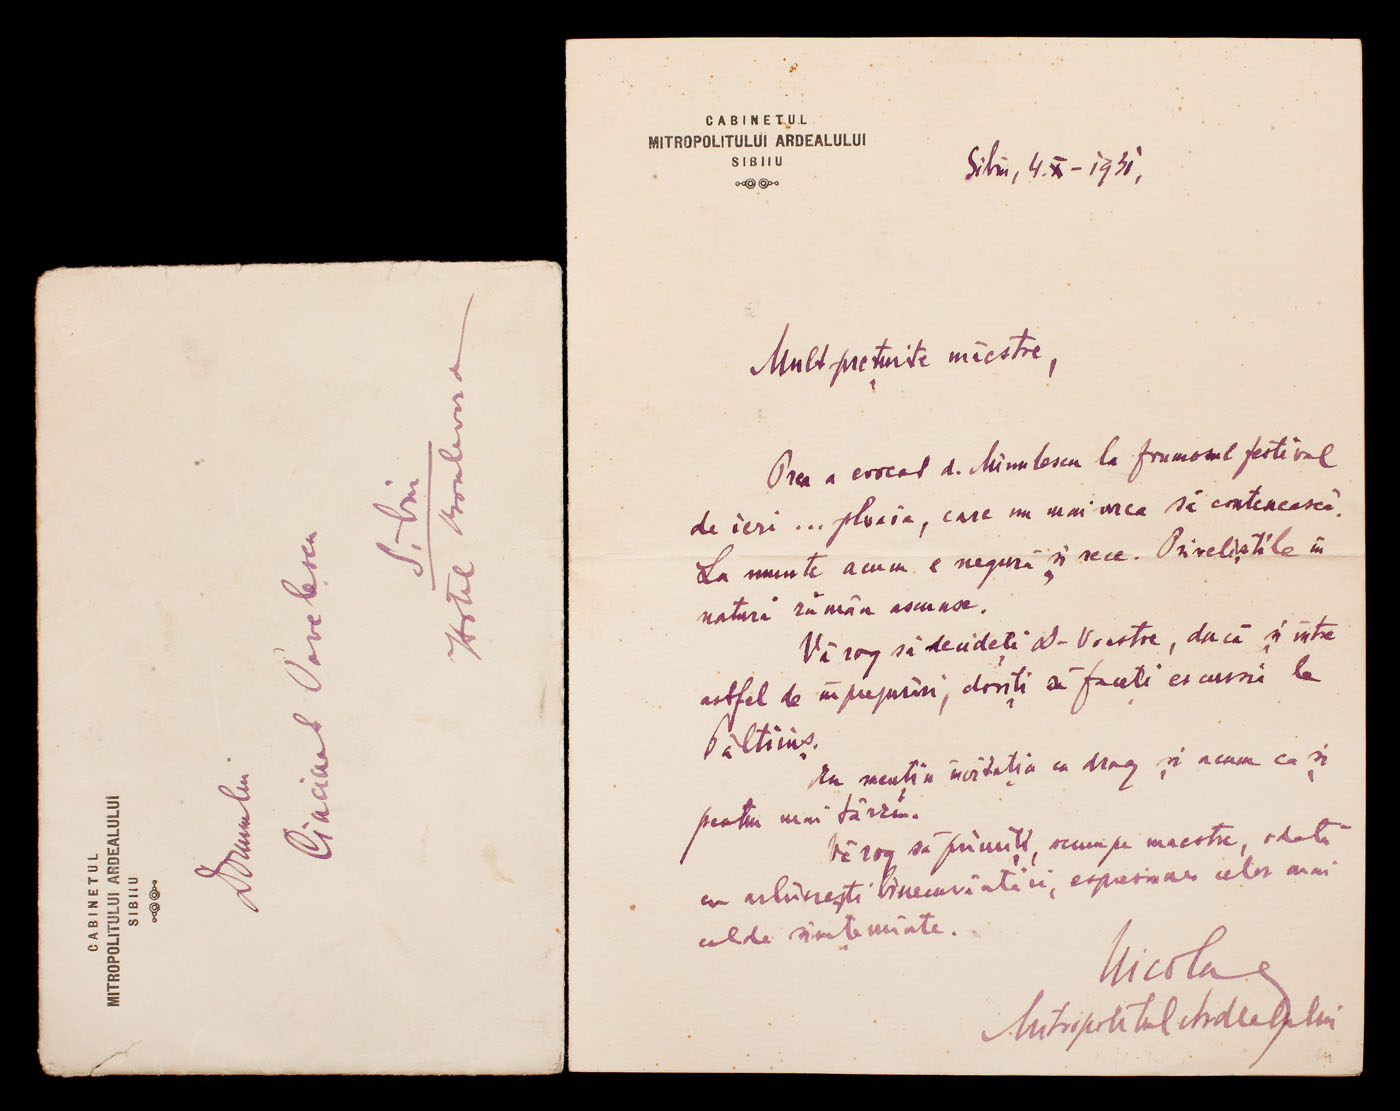 CABINETUL
MITROPOLITULUI ARDEALULUI
SIBIIU
Domnului
Cincinat Pavelescu
Sibiu
Hotel Boulevard
CABINETUL
MITROPOLITULUI ARDEALULUI
SIBIIU
Sibiu, 4.X-1931,
Mult prețuite măestre,
Prea a evocat d. Minulescu la frumosul festival
de ieri ... ploaia, care nu mai vrea să contenească.
La munte acum e negură și rece. Priveliștile în
natură rămân ascunse.
Vă rog să decideți D-Voastre, dacă și între
astfel de împrejurări, doriți să faceți escursii la
Păltiniș.
Eu mențin invitația cu drag și acum ca și
pentru mai târziu.
Vă rog să primiți, scumpe maestre, odată
cu arhierești binecuvântări, espresiunea celor mai
calde simțeminte.
Nicolae
Mitropolitul Ardealului